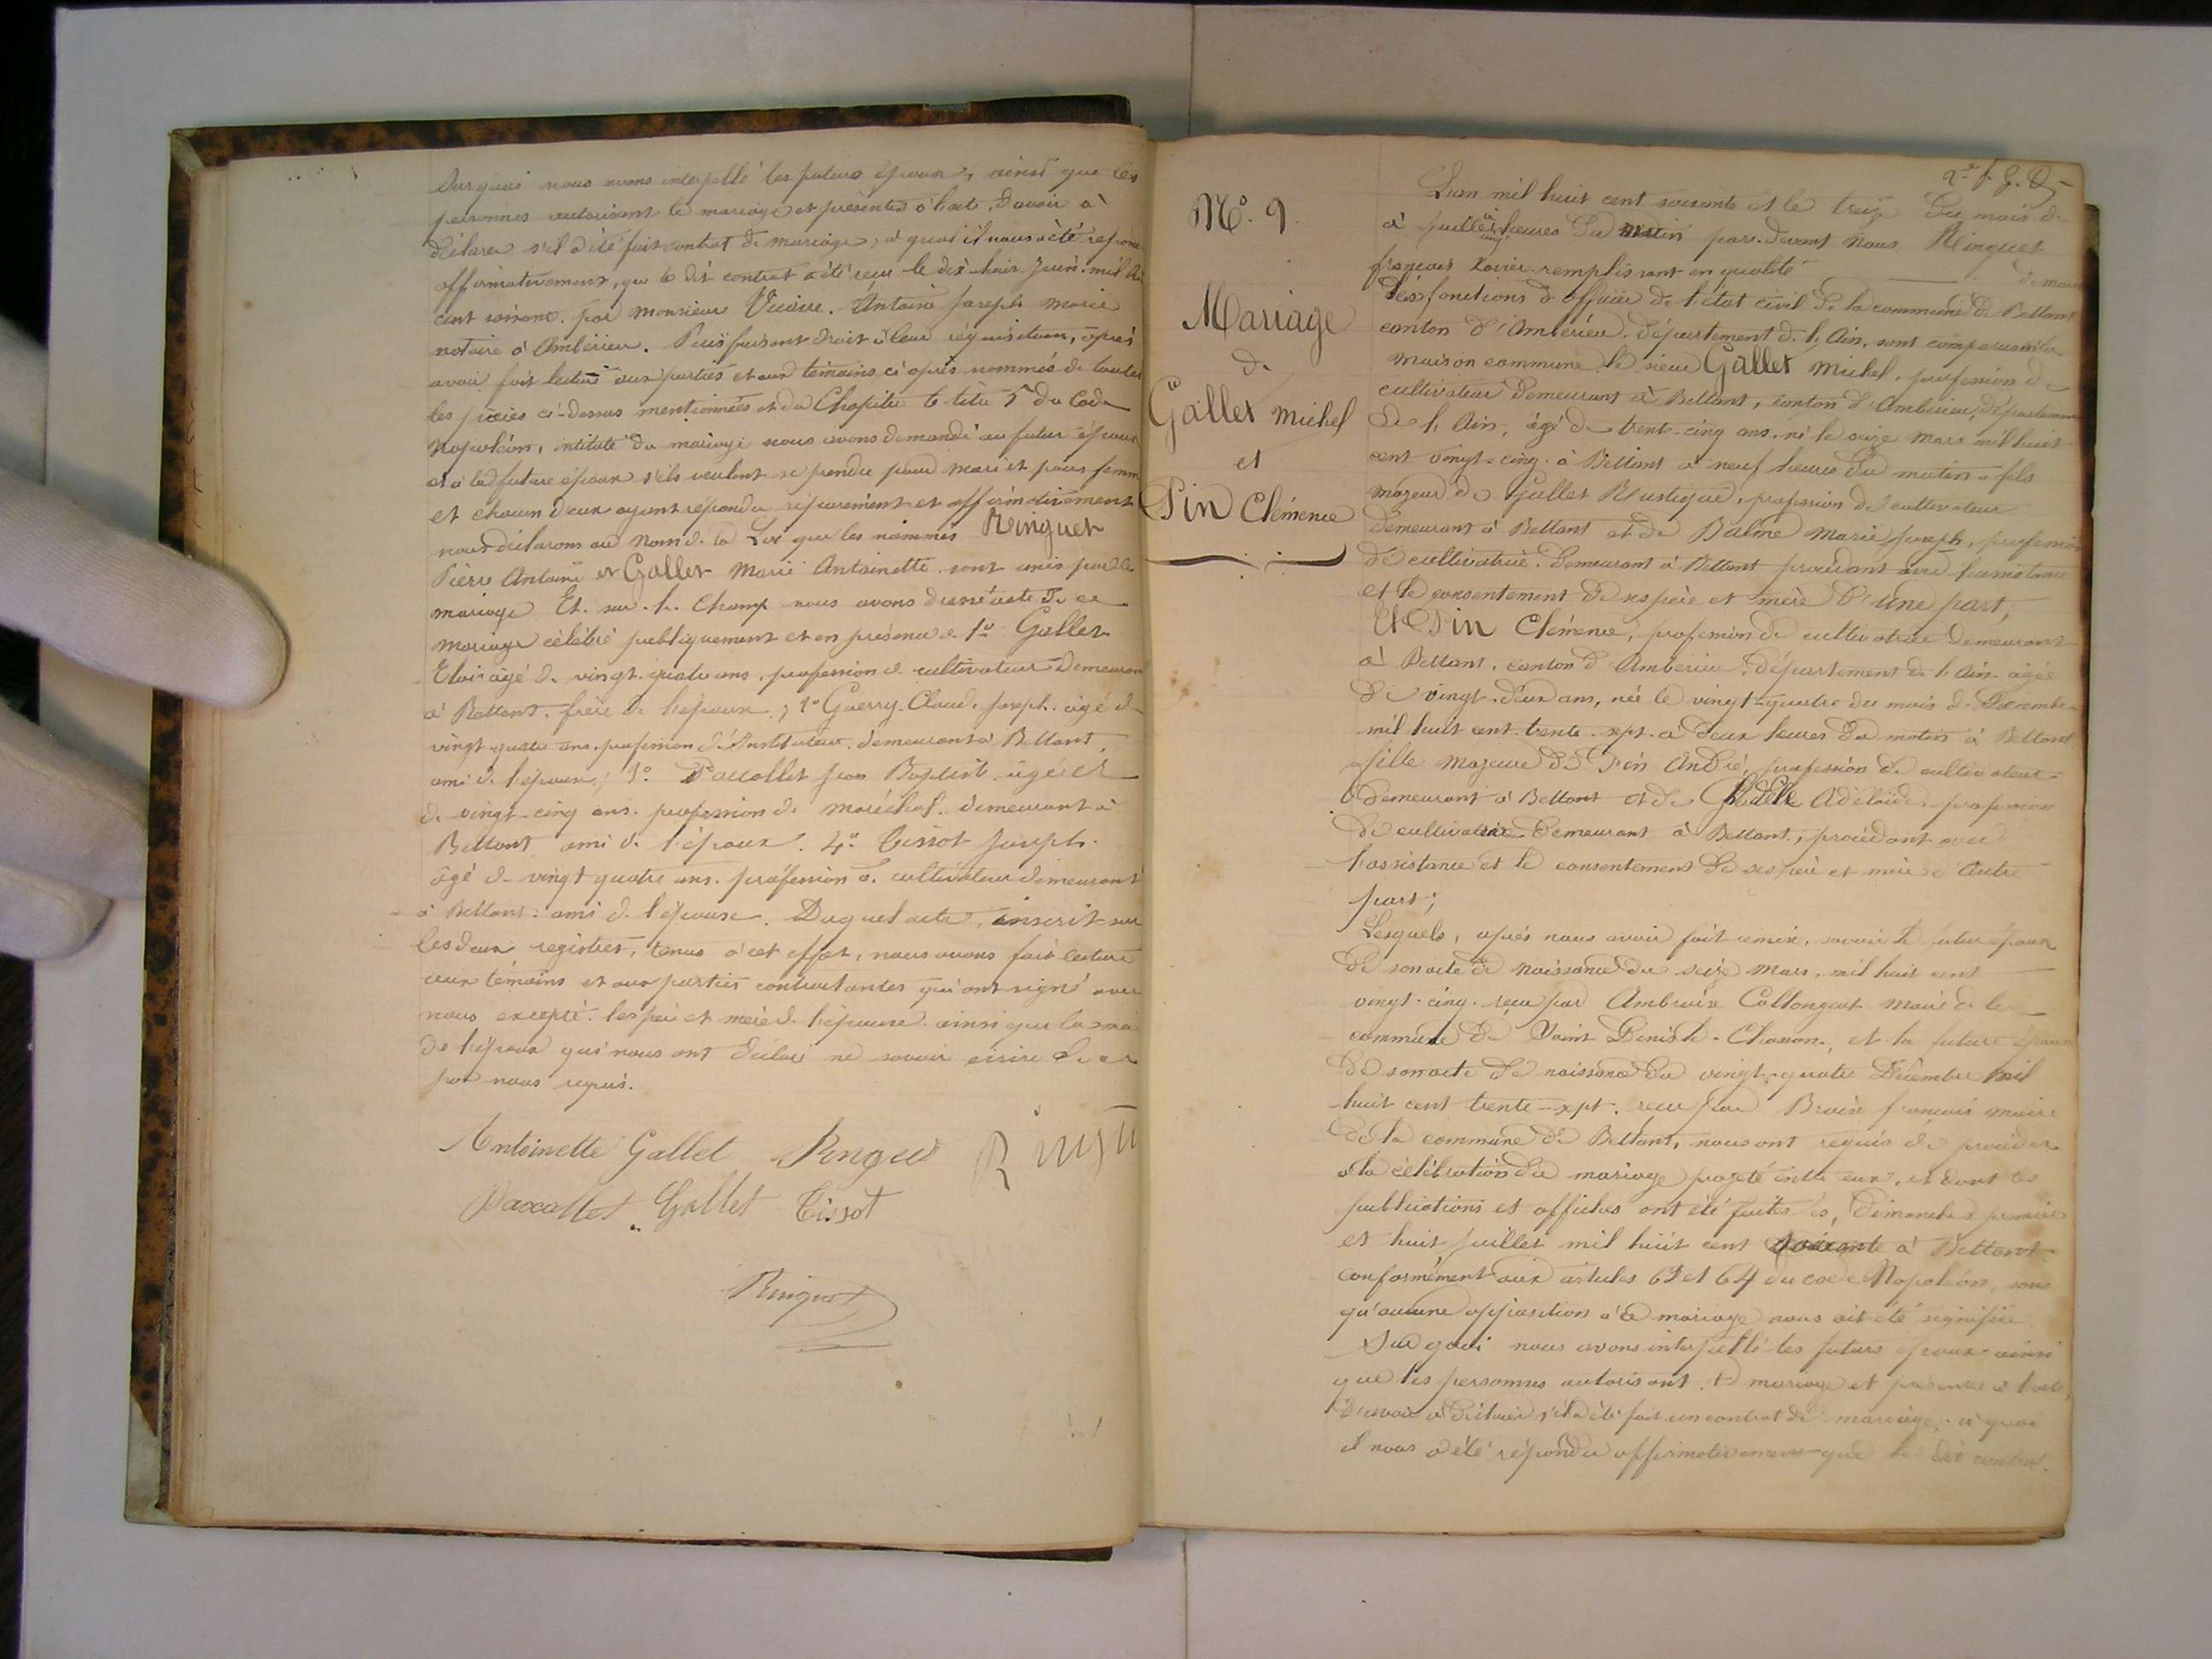 Sur quoi nous avons interpellé les futurs époux, ainsi que les
personnes autorisant le mariage et présentes à l'acte, d'avoir à
déclarer s'il a été fait contrat de mariage, à quoi il nous a été répon
affirmativement, que le dit contrat a été reçu le dix huit Juin mil hu
cent soixante par monsieur Vicaire Antoine Joseph Marie
notaire à Ambérieu. Puis faisant droit à leur réquisition, après
avoir fait lecture aux parties et aux témoins ci après nommés de toutes
les pièces ci-dessus mentionnées et du Chapitre 6 titre 5 du Code
Napoléon, intitulé du mariage nous avons demandé au futur époux
et à la future épouse s'ils veulent se prendre pour mari et pour femme
et chacun d'eux ayant répondu séparément et affirmativement
nous déclarons au nom de la Loi que les nommés Ringuet
Pierre Antoine et Gallet Marie Antoinette sont unis par le
mariage Et sur le Champ nous avons dressé acte de ce
mariage célébré publiquement et en présence de 1º Gallet
Eloi âgé de vingt quatre ans, profession de cultivateur demeurant
à Bettant frère de l'épouse; 2º Guerry Claude Joseph âgé de
vingt quatre ans profession d'Instituteur demeurant à Bettant,
ami de l'époux; 3º Pascallet Jean Baptiste âgé de
de vingt-cinq ans profession de maréchal demeurant à
Bettant ami de l'époux. 4º Tissot Joseph
âgé de vingt quatre ans profession de cultivateur demeurant
à Bettant ami de l'épouse. Duquel acte, inscrit sur
les deux registres, tenus à cet effet, nous avons fait lecture
aux témoins et aux parties contractantes qui ont signé avec
nous excepté les père et mère de l'épouse ainsi que la mère
de l'époux qui nous ont déclaré ne savoir écrire de ce
par nous requis.
Antoinette Gallet Ringuet
Pascallet Gallet Tissot
Ringuet
Nº. 9.
Mariage
de
Gallet Michel
et
Pin Clémence
L'an mil huit cent soixante et le treize du mois de
à juillet à cinq heures du matin par-devant nous Ringuet
françois Xavier remplissant en qualité de maire
les fonctions d'officier de l'état civil de la commune de Bettant
canton d'Ambérieu, département de l'Ain, sont comparus en la
maison commune le sieur Gallet Michel, profession de
cultivateur demeurant à Bettant, canton d'Ambérieu, département
de l'Ain, âgé de trente-cinq ans, né le seize Mars mil huit
cent vingt-cinq à Bettant à neuf heures du matin, fils
majeur de Gallet Rustique, profession de cultivateur
demeurant à Bettant et de Balme Marie Joseph, profession
de cultivatrice demeurant à Bettant procédant avec l'assistance
et le consentement de ses père et mère d'une part;
Et Pin Clémence, profession de cultivatrice demeurant
à Bettant, canton d'Ambérieu, département de l'Ain âgée
de vingt-deux ans, née le vingt-quatre du mois de Décembre
mil huit cent trente-sept à deux heures du matin à Bettant
fille majeure de Pin André, profession de cultivateur
demeurant à Bettant et de Adélaïde, profession
de cultivatrice demeurant à Bettant, procédant avec
l'assistance et le consentement de ses père et mère d'autre
part;
Lesquels, après nous avoir fait remise, savoir le futur époux
de son acte de naissance du seize Mars, mil huit cent
vingt-cinq reçu par Ambroise Collongeat Maire de la
commune de Saint Denis le Chosson, et la future épouse
de son acte de naissance du vingt-quatre Décembre mil
huit cent trente-sept reçu par françois maire
de la commune de Bettant, nous ont requis de procéder
à la célébration du mariage projeté entre eux, et dont les
publications et affiches ont été faites les dimanches premier
et huit juillet mil huit cent soixante à Bettant
conformément aux articles 63 et 64 du code Napoléon, sans
qu'aucune opposition à ce mariage nous ait été signifiée
Sur quoi nous avons interpellé les futurs époux ainsi
que les personnes autorisant le mariage et présentes à l'acte,
d'avoir à déclarer s'il a été fait un contrat de mariage, à quoi
il nous a été répondu affirmativement que le dit contrat